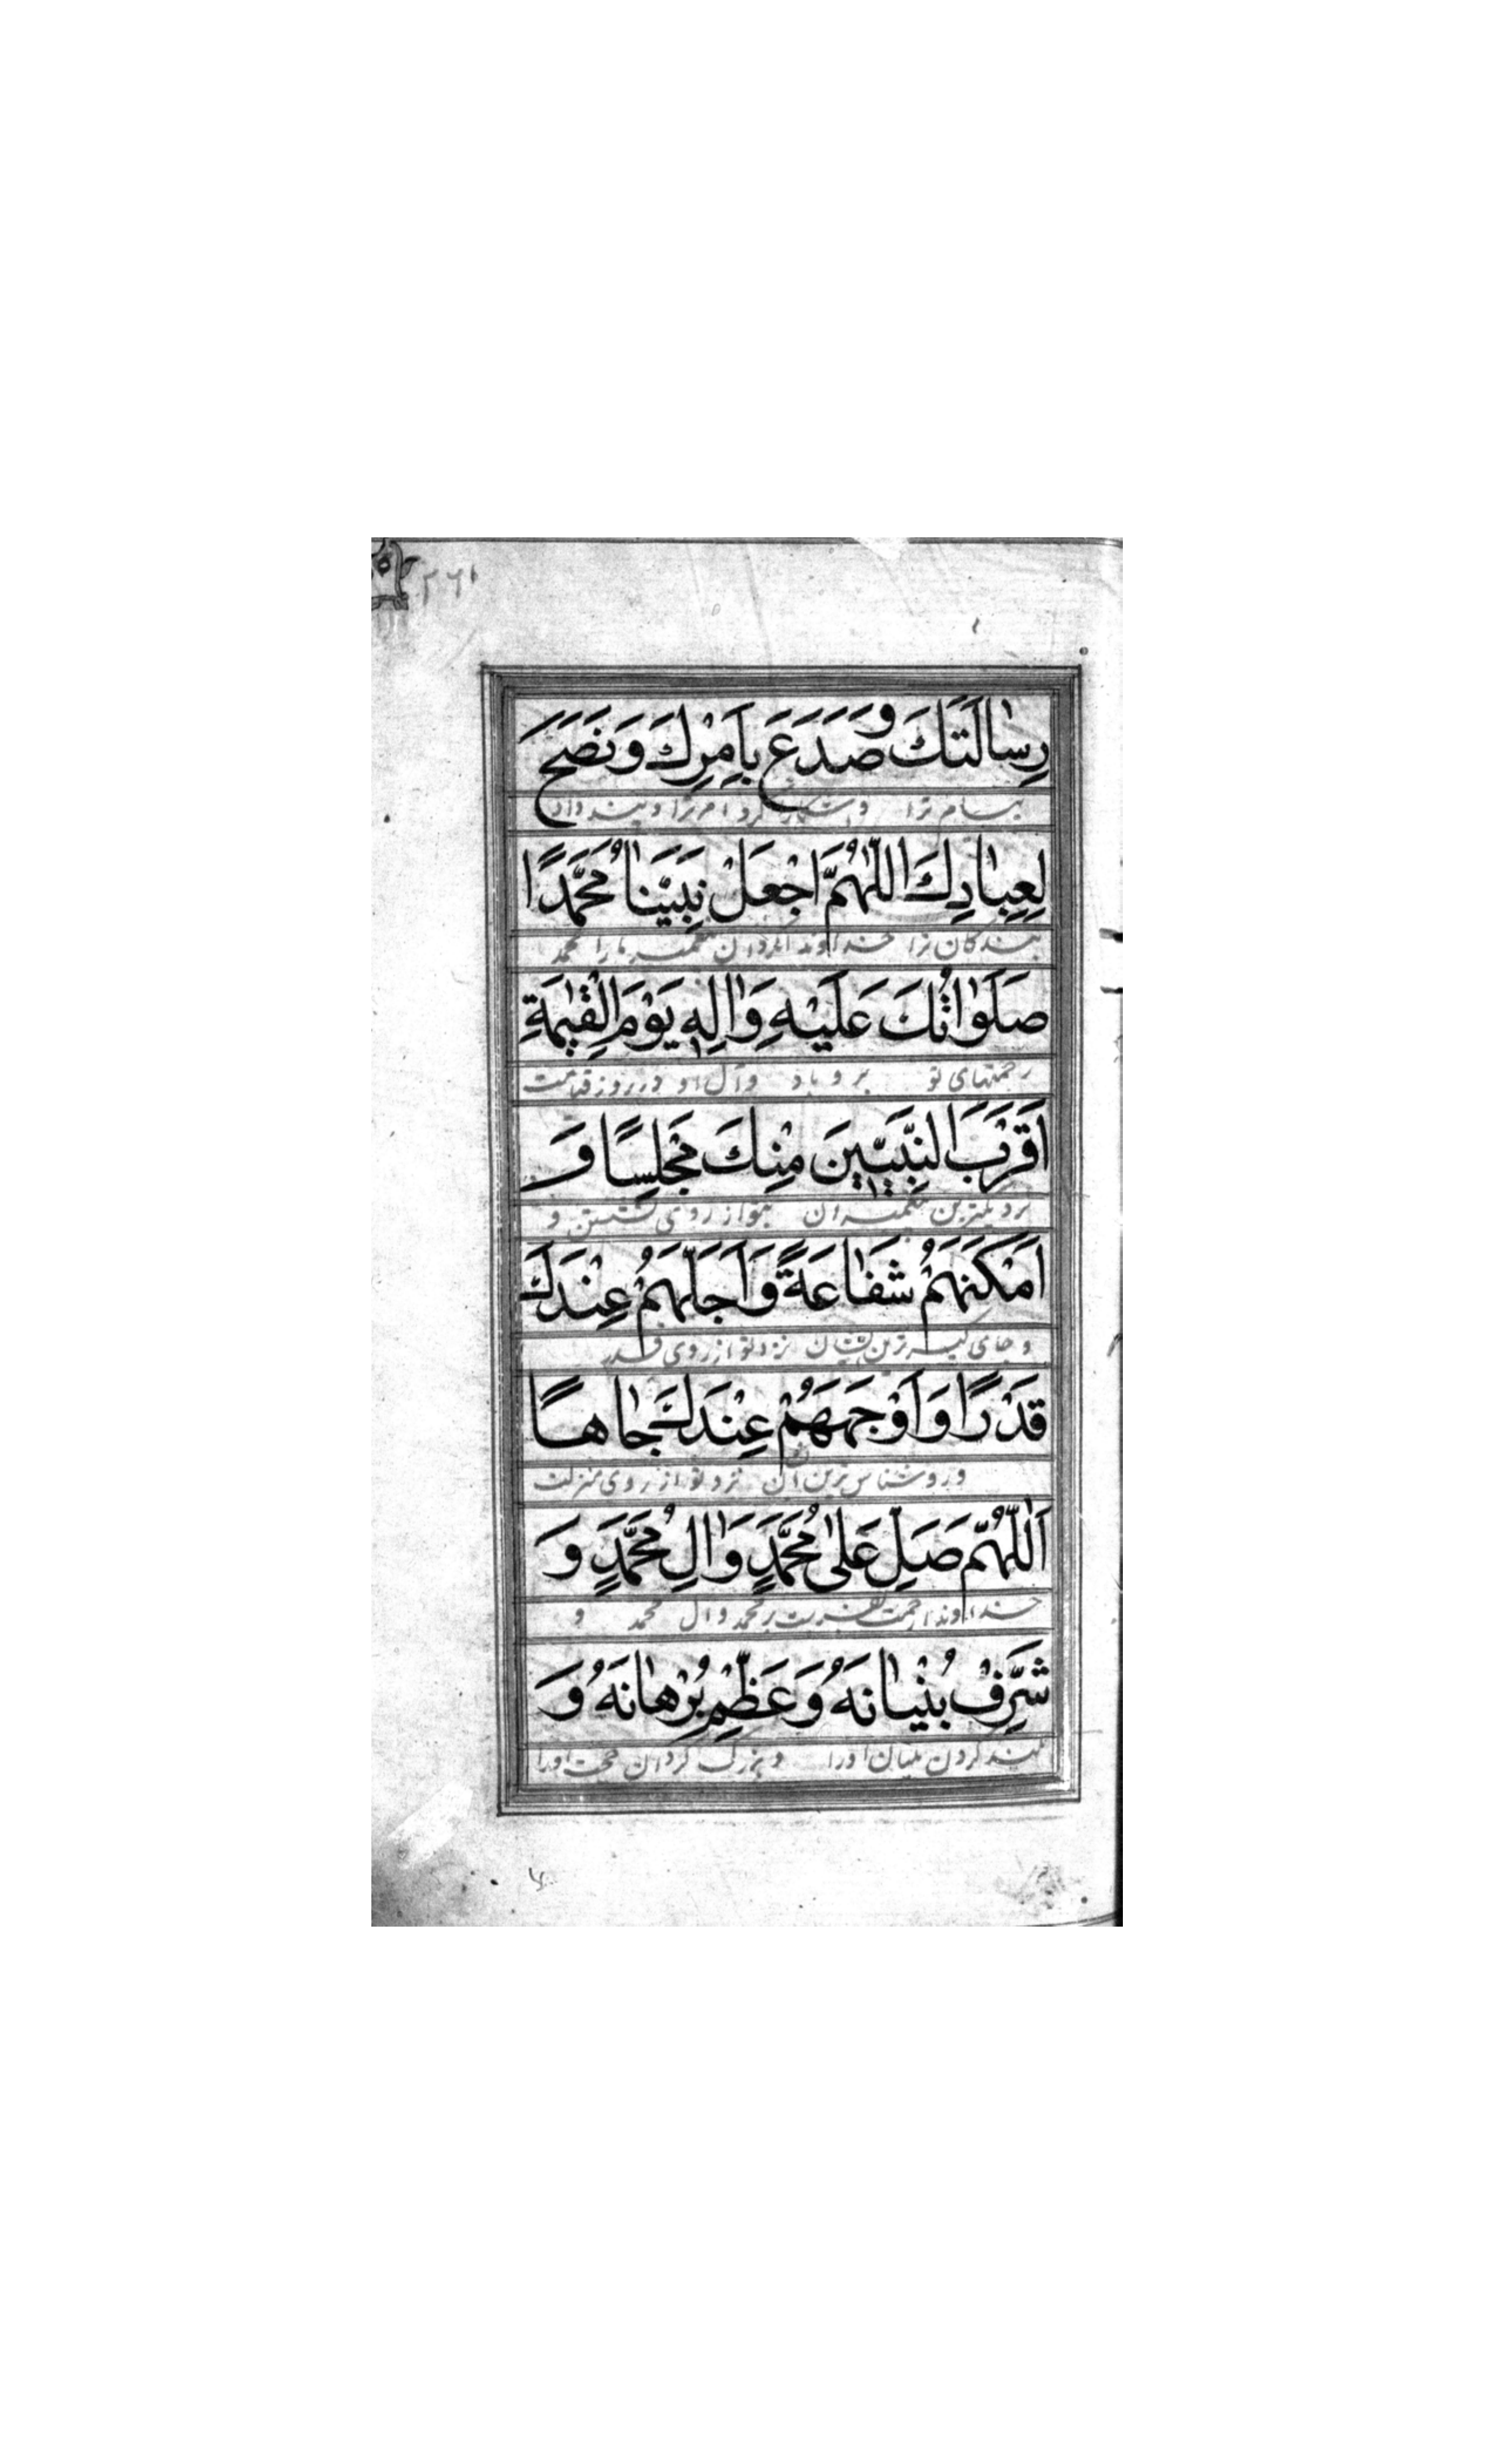 ۲۶۱
رِسٰالَتَكَ وَصَدَعَ بِاَمْرِكَ وَنَصَحَ
پیام ترا و آشکار کرد امر ترا و پند داد
لِعِبٰادِكَ اَللّٰهُمَّ اجْعَلْ نَبِیَّنٰا مُحَمَّدًا
بندکان ترا خداوندا بکردان پیغمبر ما را محمد
صَلَوٰاتُكَ عَلَیْهِ وَاٰلِهِ یَوْمَ الْقِیٰمَةِ
رحمتهای تو بر و باد و آل او در روز قیامت
اَقْرَبَ النَّبِیّٖینَ مِنْكَ مَجْلِسًا وَ
نزدیکترین پیغمبران بتو از روی نشستن و
اَمْكَنَهُمْ شَفٰاعَةً وَاَجَلَّهُمْ عِنْدَكَ
و جای کیرترین ایشان نزد تو از روی قدر
قَدْرًا وَاَوْجَهَهُمْ عِنْدَكَ جٰاهًا
و روشناس ترین نزد تو از روی منزلت
اَللّٰهُمَّ صَلِّ عَلٰی مُحَمَّدٍ وَاٰلِ مُحَمَّدٍ وَ
خداوندا رحمت بفرست بر محمد و آل محمد و
شَرِّفْ بُنْیٰانَهُ وَعَظِّمْ بُرْهٰانَهُ وَ
بلند کردن بنیان او را و بزرک کردان حجت او را